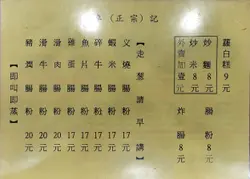 （正宗）記
蘿白糕9元
炒麵8元
炒米8元
外賣加壹元
炸腸8元
腸粉8元
【走葱請早講】
叉燒腸粉17元
蝦米腸粉17元
碎牛腸粉17元
魚片腸粉17元
雞蛋腸粉17元
滑肉腸粉20元
滑牛腸粉20元
豬潤腸粉20元
【即叫即蒸】